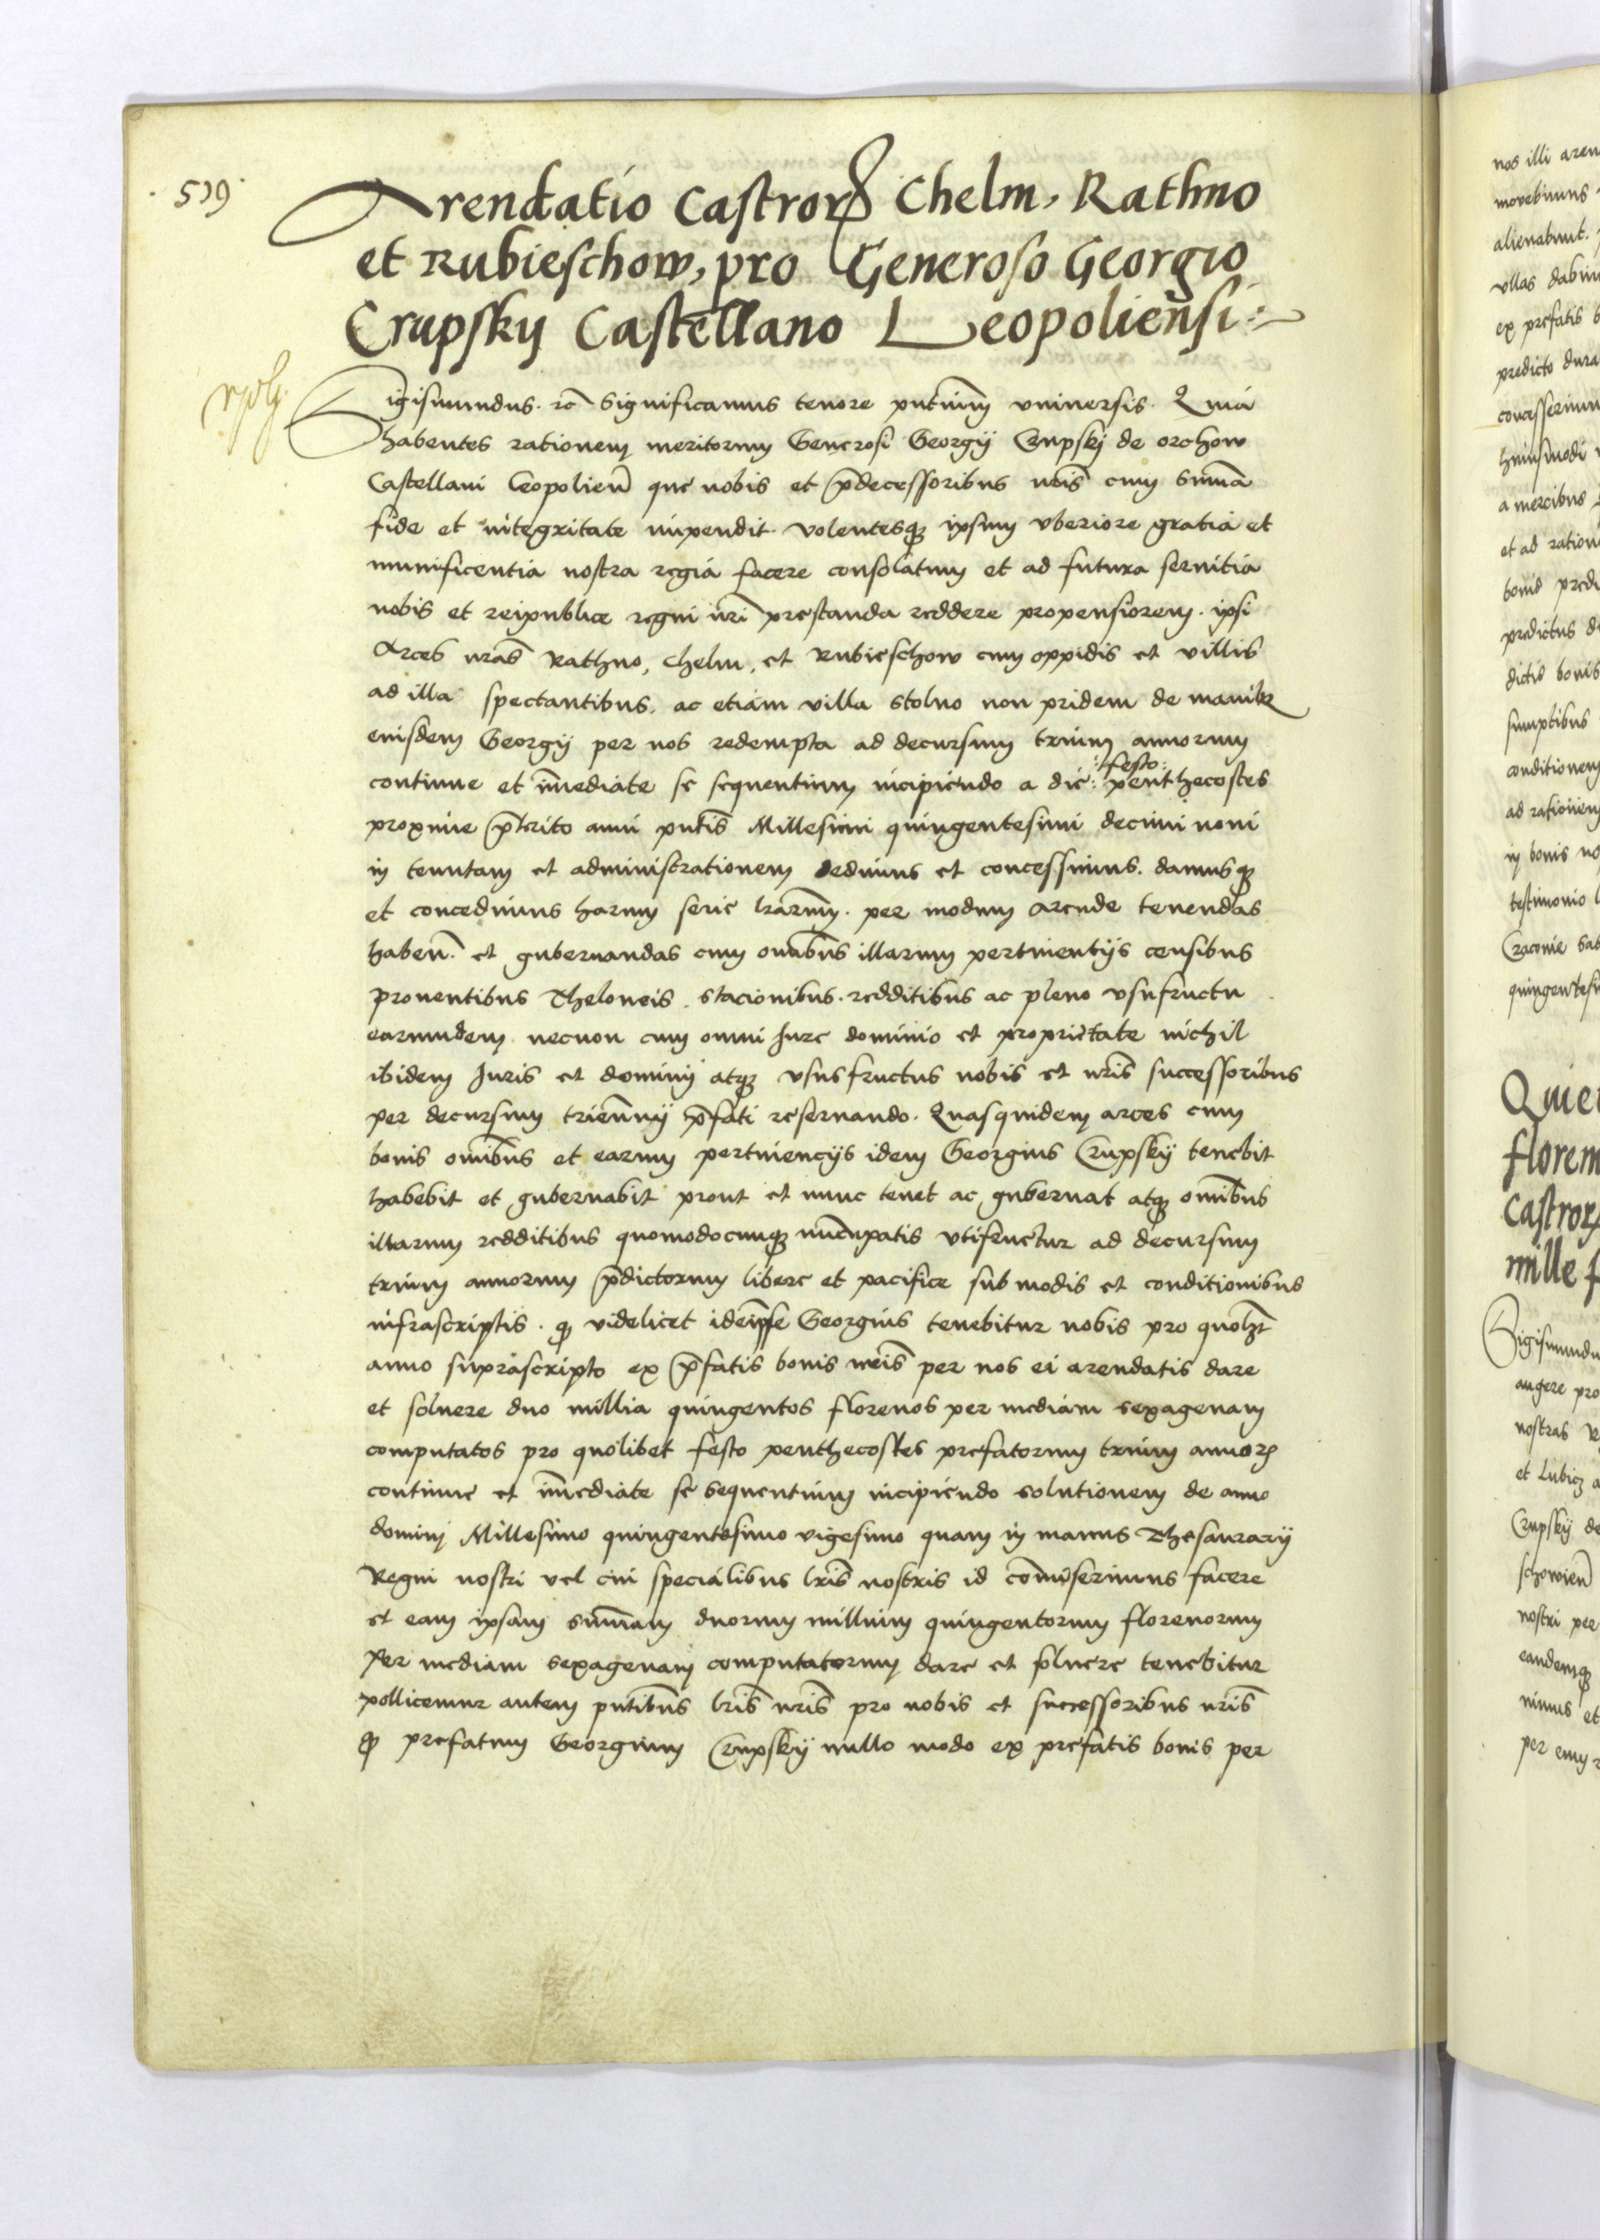 519
Arendatio Castror(um) Chelm, Rathno
et Rubieschow, pro Generoso Georgio
Crupskij Castellano Leopoliensi
Sigismundus. rc̄ Significamus tenore pntium̄ vniuersis. Quia
habentes rationem meritorum Generosi Georgij Crupskj de orchow
Castellani Leopolien̄ que nobis et p̄decessoribus nr̄is cum summa
fide et integritate impendit. volentesq(ue) ipsum vberiore gratia et
munificentia nostra regia facere consolatum et ad futura seruitia
nobis et reipublice regni nr̄i prestanda reddere propensiorem. ipsi
Arces nr̄as Rathno, Chelm, et Rubieschow cum oppidis et villis
ad illa spectantibus. ac etiam villa stolno non pridem de manib(us)
eiusdem Georgij per nos redempta ad decursum trium annorum
continue et im̄ediate se sequentium incipiendo a die :festo: penthecostes
proxime p̄terito anni pn̄tis Millesimi quingentesimi decimi noni
in tenutam et administrationem dedimus et concessimus. damusq(ue)
et concedimus harum serie lr̄arum. per modum Arende tenendas
haben̄. et gubernandas cum om̄ibus illarum pertinentijs censibus
prouentibus Theloneis. stacionibus. redditibus ac pleno vsufructu
earumdem necnon cum omni Jure dominio et proprietate nichil
ibidem Juris et dominij atq(ue) vsusfructus nobis et nr̄is successoribus
per decursum triennij p̄fati reseruando. Quasquidem arces cum
bonis om̄ibus et earum pertinencijs idem Georgius Crupskij tenebit
habebit et gubernabit prout et nunc tenet ac gubernat atq(ue) om̄ibus
illarum redditibus quomodocumq(ue) nuncupatis vtifruetur ad decursum
trium annorum p̄dictorum libere et pacifice sub modis et conditionibus
infrascriptis. q(uod) videlicet idem ipse Georgius tenebitur nobis pro quolz̄
anno suprascripto ex p̄fatis bonis nr̄is per nos ei arendatis dare
et soluere duo millia quingentos florenos per mediam sexagenam
computatos pro quolibet festo penthecostes prefatorum trium annor(um)
continue et im̄ediate se sequentium incipiendo solutionem de anno
domini Millesimo quingentesimo vigesimo quam in manus Thesaurarij
Regni nostri vel cui specialibus lr̄is nostris id com̄iserimus facere
et eam ipsam sum̄am duorum millium quingentorum florenorum
Per mediam sexagenam computatorum dare et soluere tenebitur
pollicemur autem pn̄tibus lr̄is nr̄is pro nobis et successoribus nr̄is
q(uod) prefatum Georgium Crupskij nullo modo ex prefatis bonis per
nos illi aren
mouebimus
alienabunt.
vllas dabim
ex prefatis b
predicto dura
concesserimu
huiusmodi
a mercibus
et ad ration
bonis predi
predictus d
dictis bonis
sumptibus
conditionem
ad rationem
in bonis no
testimonio l
Cracouie Sab
quingentesi
Quiet
florem
Castror
mille f
Sigismundu
augere pro
nostras R
et Lubicz a
Crupskij de
schowien̄
nostri per
eandemq(ue)
nimus et
per eum